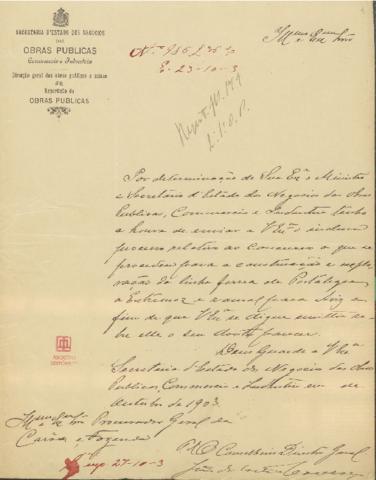 SECRETARIA D'ESTADO DOS NEGOCIOS
DAS
OBRAS PUBLICAS
Commercio e Industria
Direcção geral das obras publicas e minas
Repartição de
OBRAS PUBLICAS
E. 23-10-3
L.º 1.º O. P.
Por determinação de Sua Ex.ª o Ministro
e Secretario d'Estado dos Negocios das Obras
Publicas, Commercio e Industria tenho
a honra de enviar a V. Ex.ª o incluso
processo relativo ao Concurso a que se
procedeu para a construcção e explo-
ração da linha ferrea de Portalegre
a Estremoz e ramal para Aviz a
fim de que V. Ex.ª se digne emittir so-
bre elle o seu douto parecer.
Deus Guarde a V. Ex.ª
Secretaria d'Estado dos Negocios das Obras
Publicas, Commercio e Industria em de
Outubro de 1903.
Procurador Geral da
Corôa e Fazenda
O Conselheiro Director Geral
27-10-3